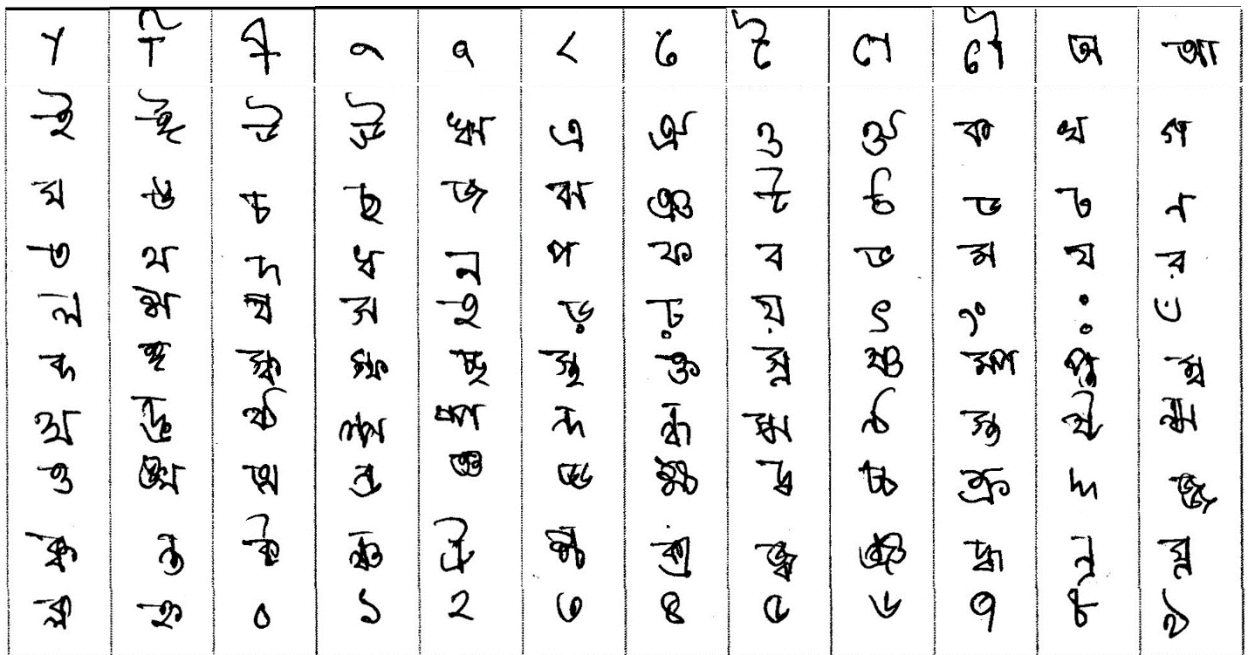 া ি ী ু ূ ৃ ে ৈ ো ৌ অ আ
ই ঈ উ ঊ ঋ এ ঐ ও ঔ ক খ গ
ঘ ঙ চ ছ জ ঝ ঞ ট ঠ ড ঢ ণ
ত থ দ ধ ন প ফ ব ভ ম য র
ল শ ষ স হ ড় ঢ় য় ৎ ং ঃ ঁ
ব্দ ঙ্গ স্ক স্ফ চ্ছ স্থ ক্ত স্ন ষ্ণ ম্প প্ত ম্ব
ত্থ দ্ভ ষ্ঠ ল্প ষ্প ন্দ ন্ধ ম্ম ণ্ঠ স্ত ষ্ট ন্ম
ত্ত ঙ্খ ত্ম ন্ড ড্ড ক্ষ দ্ব চ্চ ক্র দ্দ জ্জ
ক্ক ন্ত ক্ট ঞ্চ ট্ট জ্ব ঞ্জ দ্ধ ন্ন ঘ্ন
হ্ন ০ ১ ২ ৩ ৪ ৫ ৬ ৭ ৮ ৯